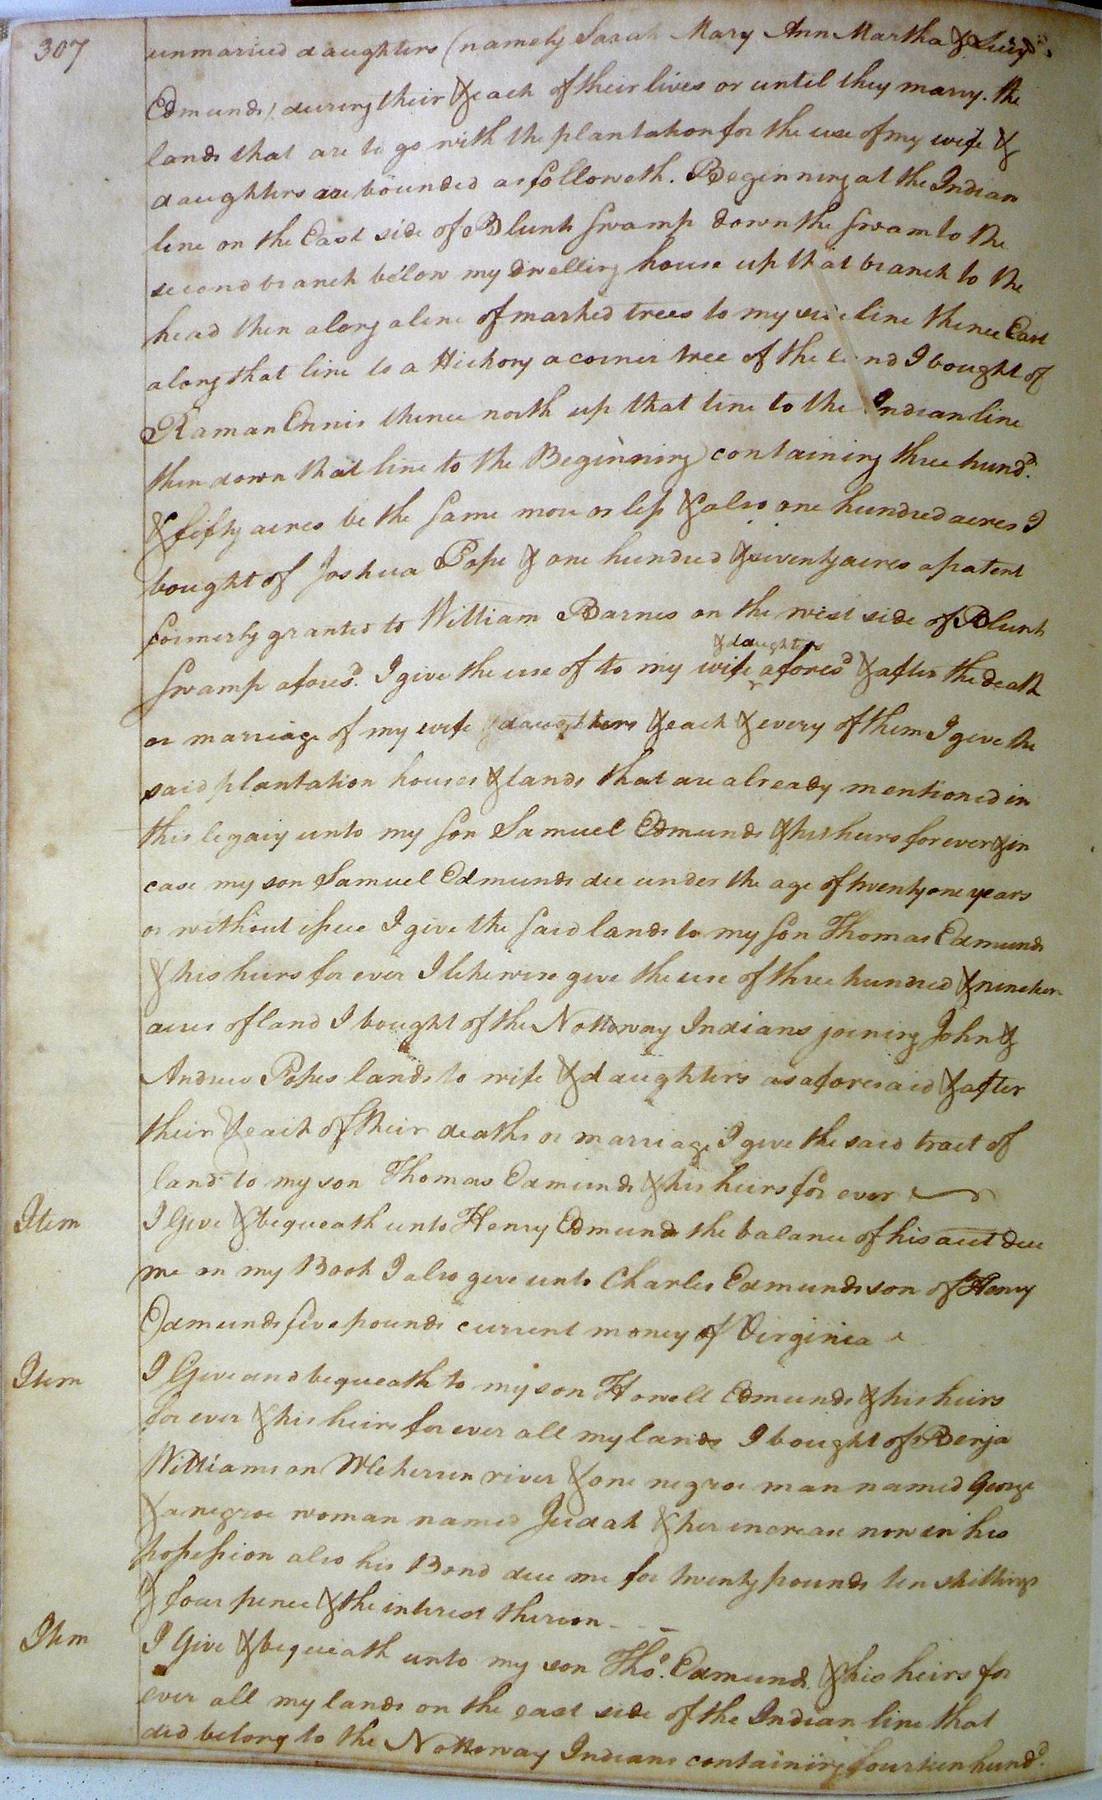 307
unmarried daughters (namely Sarah Mary Ann Martha & Lucy
Edmunds) during their & each of their lives or until they marry. the
lands that are to go with the plantation for the use of my wife &
daughters are bounded as followeth. Beginning at the Indian
line on the East side of Blunts Swamp down the Swam to the
second branch below my dwelling house up that branch to the
head then along a line of marked trees to my line thence East
along that line to a Hickory a corner tree of the land I bought of
Raman Ennis thence north up that line to the Indian line
then down that line to the Beginning containing three hund.d
& fifty acres be the same more or less & also one hundred acres I
bought of Joshua Pope & one hundred & seventy acres a patent
formerly granted to William Barnes on the west side of Blunts
& daughters
Swamp afores.d I give the use of to my wife afores.d & after the death
or marriage of my wife & daughters & each & every of them I give the
said plantation houses & lands that are already mentioned in
this legacy unto my son Samuel Edmunds & his heirs forever & in
case my son Samuel Edmunds die under the age of twenty one years
or without issue I give the said lands to my son Thomas Edmunds
& his heirs for ever I likewise give the use of three hundred & nineteen
acres of land I bought of the Nottoway Indians joining John &
Andrew Popes lands to wife & daughters as aforesaid & after
their & each of their deaths or marriage I give the said tract of
land to my son Thomas Edmunds & his heirs for ever
Item I Give & bequeath unto Henry Edmunds the balance of his acct due
me on my Book I also give unto Charles Edmunds son of Henry
Edmunds five pounds current money of Virginia
Item I Give and bequeath to my son Howell Edmunds & his heirs
for ever & his heirs for ever all my lands I bought of Benja
Williams on Meherrin river & one negroe man named George
& a negroe woman named Judah & her increase now in his
possession also his Bond due me for twenty pounds ten shillings
& four pence & the interest thereon
Item I Give & bequeath unto my son Tho.s Edmunds & his heirs for
ever all my lands on the east side of the Indian line that
did belong to the Nottoway Indians containing fourteen hund.d